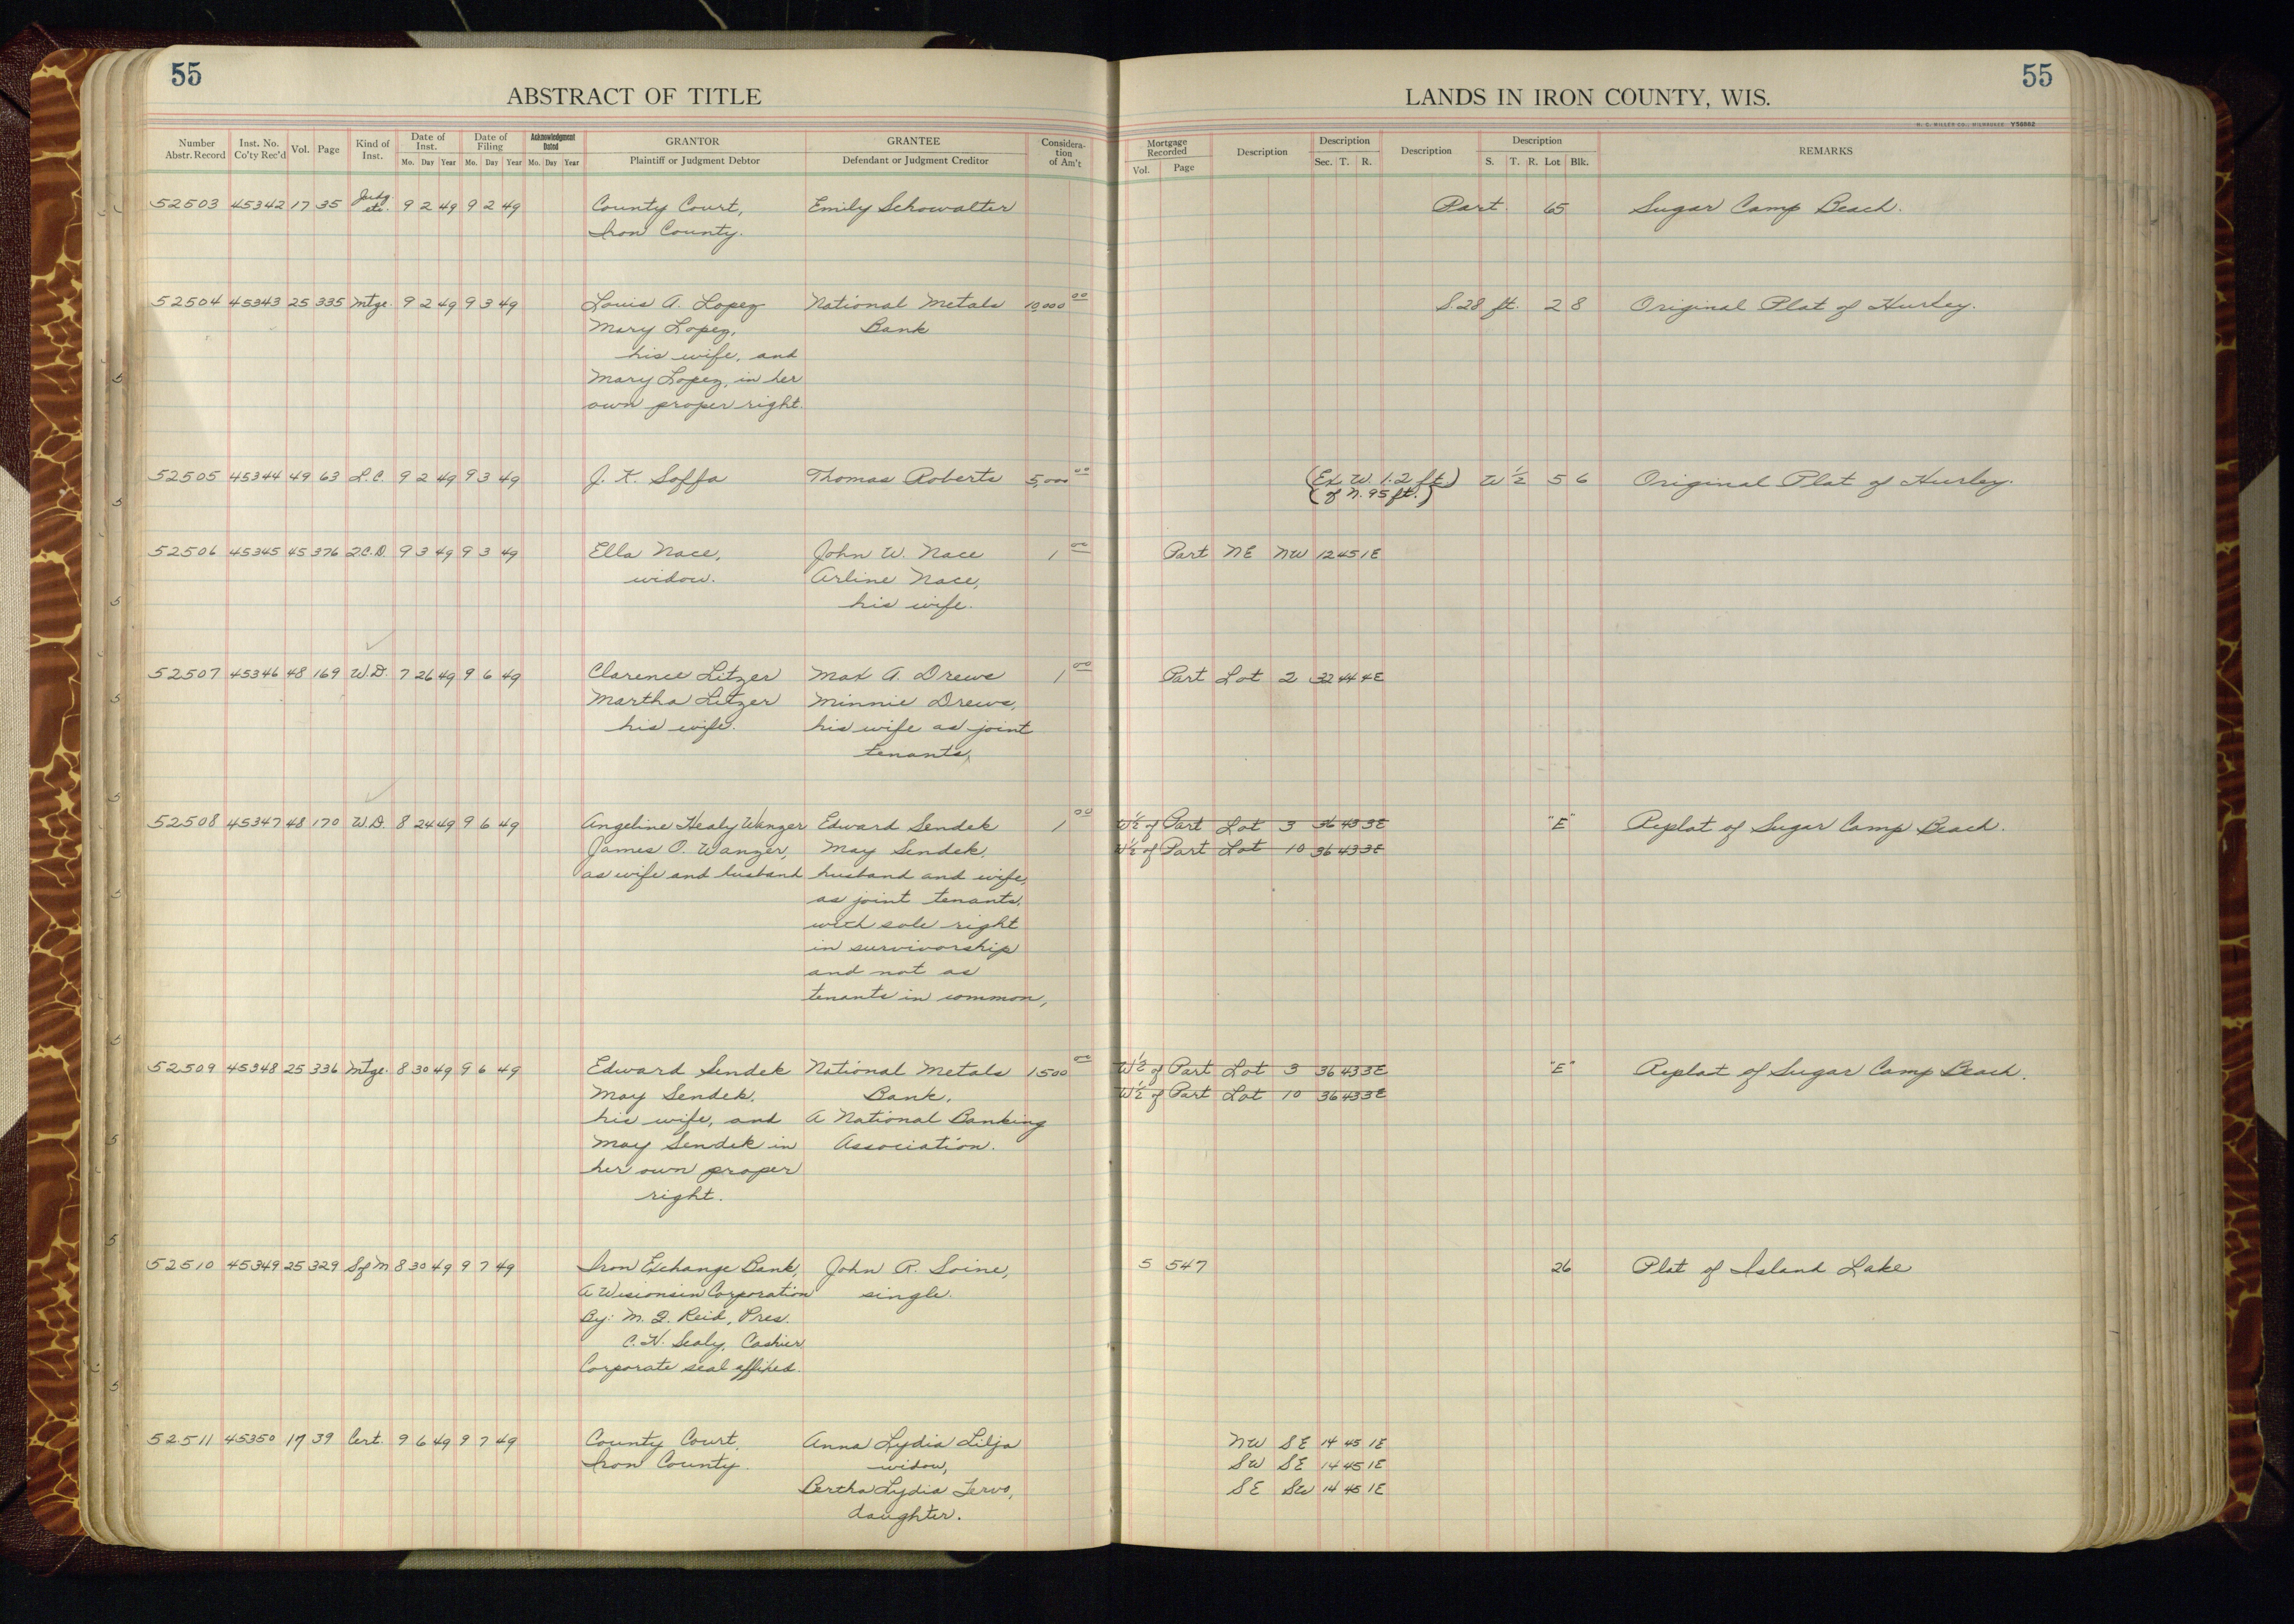 55
55
ABSTRACT OF TITLE
LANDS IN IRON COUNTY, WIS.
H. C. MILLER CO., MILWAUKEE Y56882
Number Abstr. Record Inst. No. Co'ty Rec'd Vol. Page Kind of Inst. Date of Inst. Mo. Day Year Date of Filing Mo. Day Year Acknowledgment Dated Mo. Day Year GRANTOR Plaintiff or Judgment Debtor GRANTEE Defendant or Judgment Creditor Considera-tion of Am't
Mortgage Recorded Vol. Page Description Description Sec. T. R. Description Description S. T. R. Lot Blk. REMARKS
52503 45342 17 35 Judg. etc. 9 2 49 9 2 49 County Court, Emily Schowalter Part 65 Sugar Camp Beach.
Iron County.
52504 45343 25 335 Mtge. 9 2 49 9 3 49 Louis A. Lopez National Metals 10,000 00 S. 28 ft. 2 8 Original Plat of Hurley.
Mary Lopez, Bank
his wife, and
Mary Lopez, in her
own proper right.
52505 45344 49 63 L.C. 9 2 49 9 3 49 J. K. Soffa Thomas Roberts 5,000 00 (Ex. W. 1.2 ft.) W 1/2 5 6 Original Plat of Hurley.
(of N. 95 ft.)
52506 45345 45 376 Q.C.D. 9 3 49 9 3 49 Ella Nace, John W. Nace 1 00 Part NE NW 12 45 1E
widow. Arline Nace,
his wife.
52507 45346 48 169 W.D. 7 26 49 9 6 49 Clarence Litzer Max A. Drews 1 00 Part Lot 2 32 44 4E
Martha Litzer Minnie Drews,
his wife. his wife as joint
tenants,
52508 45347 48 170 W.D. 8 24 49 9 6 49 Angeline Healy Wanzer Edward Sendek 1 00 W 1/2 of Part Lot 3 36 43 3E "E" Replat of Sugar Camp Beach.
James O. Wanzer, May Sendek, W 1/2 of Part Lot 10 36 43 3E
as wife and husband husband and wife,
as joint tenants,
with sole right
in survivorship
and not as
tenants in common,
52509 45348 25 336 Mtge. 8 30 49 9 6 49 Edward Sendek National Metals 1500 00 W 1/2 of Part Lot 3 36 43 3E "E" Replat of Sugar Camp Beach.
May Sendek, Bank, W 1/2 of Part Lot 10 36 43 3E
his wife, and A National Banking
May Sendek in Association.
her own proper
right.
52510 45349 25 329 S of M 8 30 49 9 7 49 Iron Exchange Bank, John R. Soine, 5 547 26 Plat of Island Lake
A Wisconsin Corporation single.
By: M. J. Reid, Pres.
C. H. Sealy, Cashier
Corporate seal affixed.
52511 45350 17 39 Cert. 9 6 49 9 7 49 County Court, Anna Lydia Lilja NW SE 14 45 1E
Iron County. widow, SW SE 14 45 1E
Bertha Lydia Tervo, SE SW 14 45 1E
daughter.